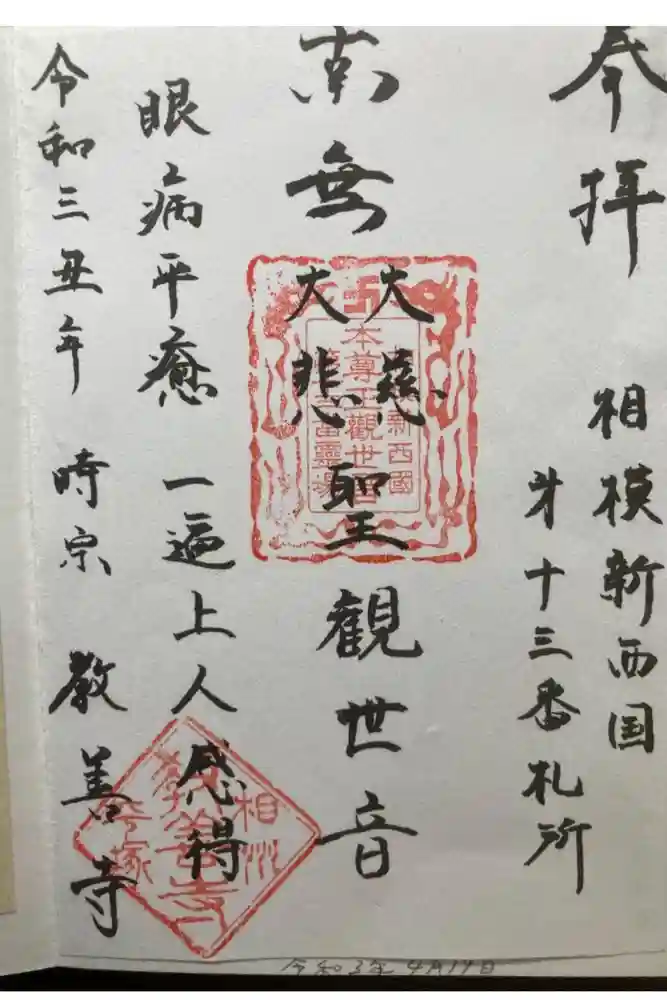 奉拝
相模新西国
才十三番札所
南無
大慈
大悲
聖観世音
眼病平癒 一遍上人感得
令和三丑年 時宗 教善寺
新西國
本尊正觀世音
霊場
相州
教善寺
令和3年4月19日